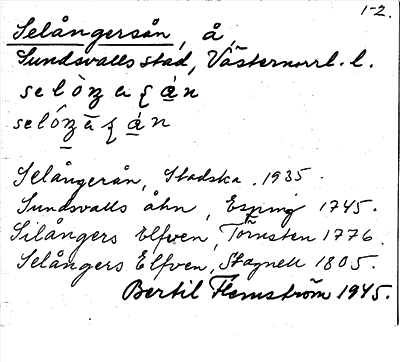 1-2.
Selångersån, å,
Sundsvalls stad, Västernorrl. l.
Selångerån, Stadska. 1935.
Sundsvalls åhn, Esping 1745.
Silångers Elfven, Törnsten 1776.
Selångers Elfven, Stagnell 1805.
Bertil Flemström 1945.